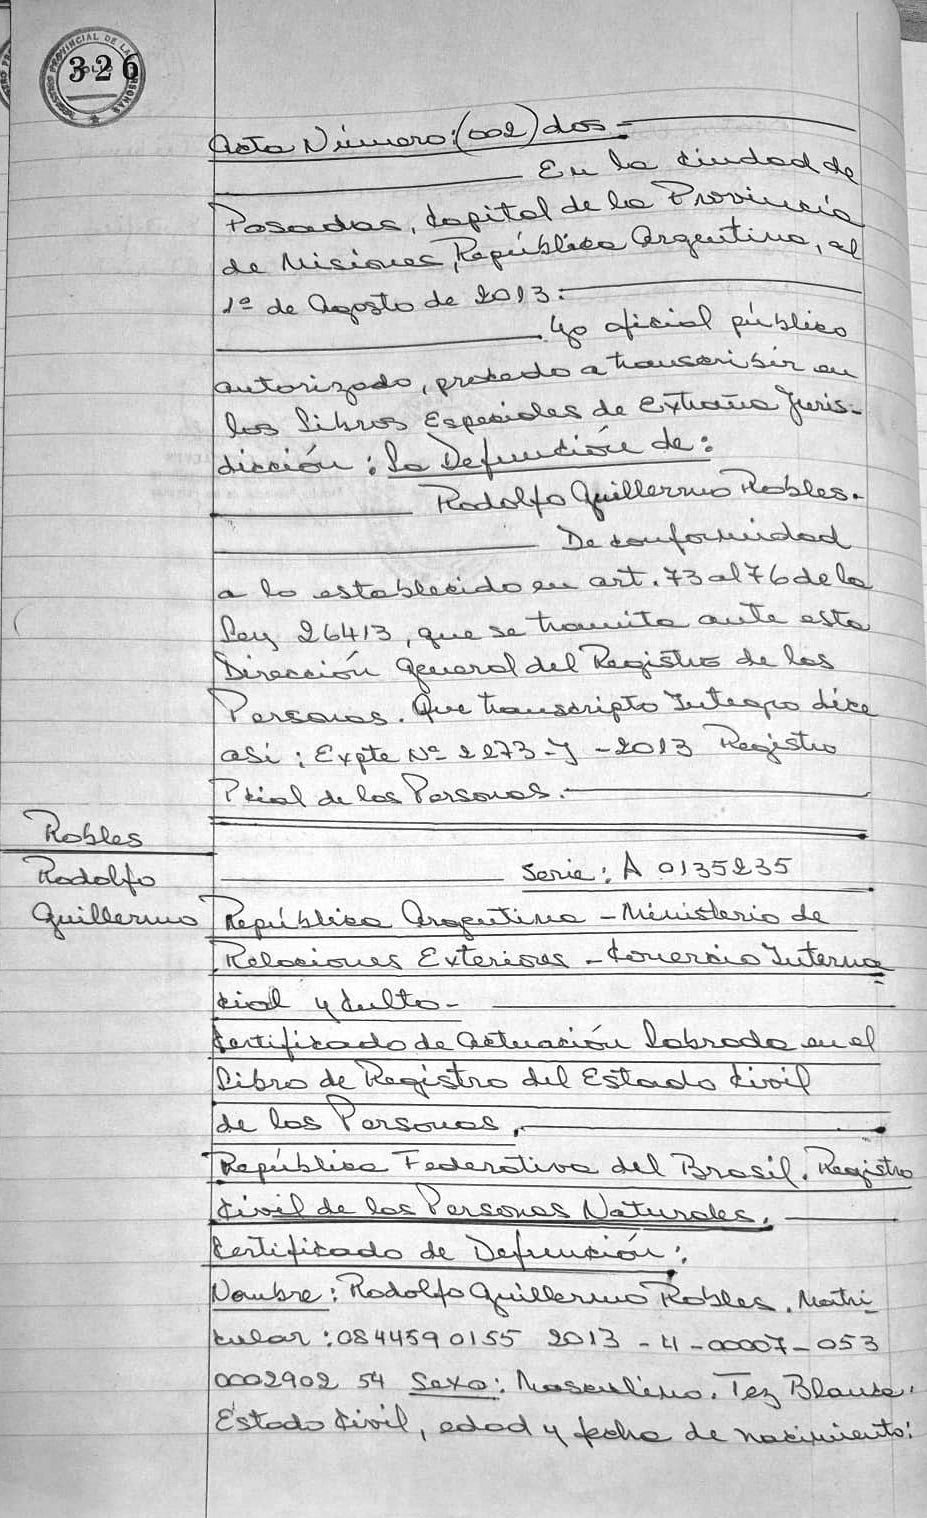 REGISTRO PROVINCIAL DE LAS PERSONAS
FOLIO
326
Acta Número: (002) dos.-
En la Ciudad de
Posadas, Capital de la Provincia
de Misiones, República Argentina, al
1º de Agosto de 2013.-
Yo oficial público
autorizado, procedo a transcribir en
los Libros Especiales de Extraña Juris-
dicción: La Defunción de:
Rodolfo Guillermo Robles.
De conformidad
a lo establecido en art. 73 al 76 de la
Ley 26413, que se tramita ante esta
Dirección General del Registro de las
Personas. Que transcripto Integro dice
asi: Expte Nº 2273-J-2013 Registro
Pcial de las Personas.-
Robles
Rodolfo
Guillermo
Serie: A 0135235
República Argentina - Ministerio de
Relaciones Exteriores - Comercio Interna
cial y Culto-
Certificado de Actuación Labrada en el
Libro de Registro del Estado Civil
de las Personas.
República Federativa del Brasil. Registro
Civil de las Personas Naturales.
Certificado de Defunción:
Nombre: Rodolfo Guillermo Robles. Matri
cular: 0844590155 2013 - 4 - 00007 - 053
0002902 54 Sexo: Masculino. Tez Blanca.
Estado Civil, edad y fecha de nacimiento: